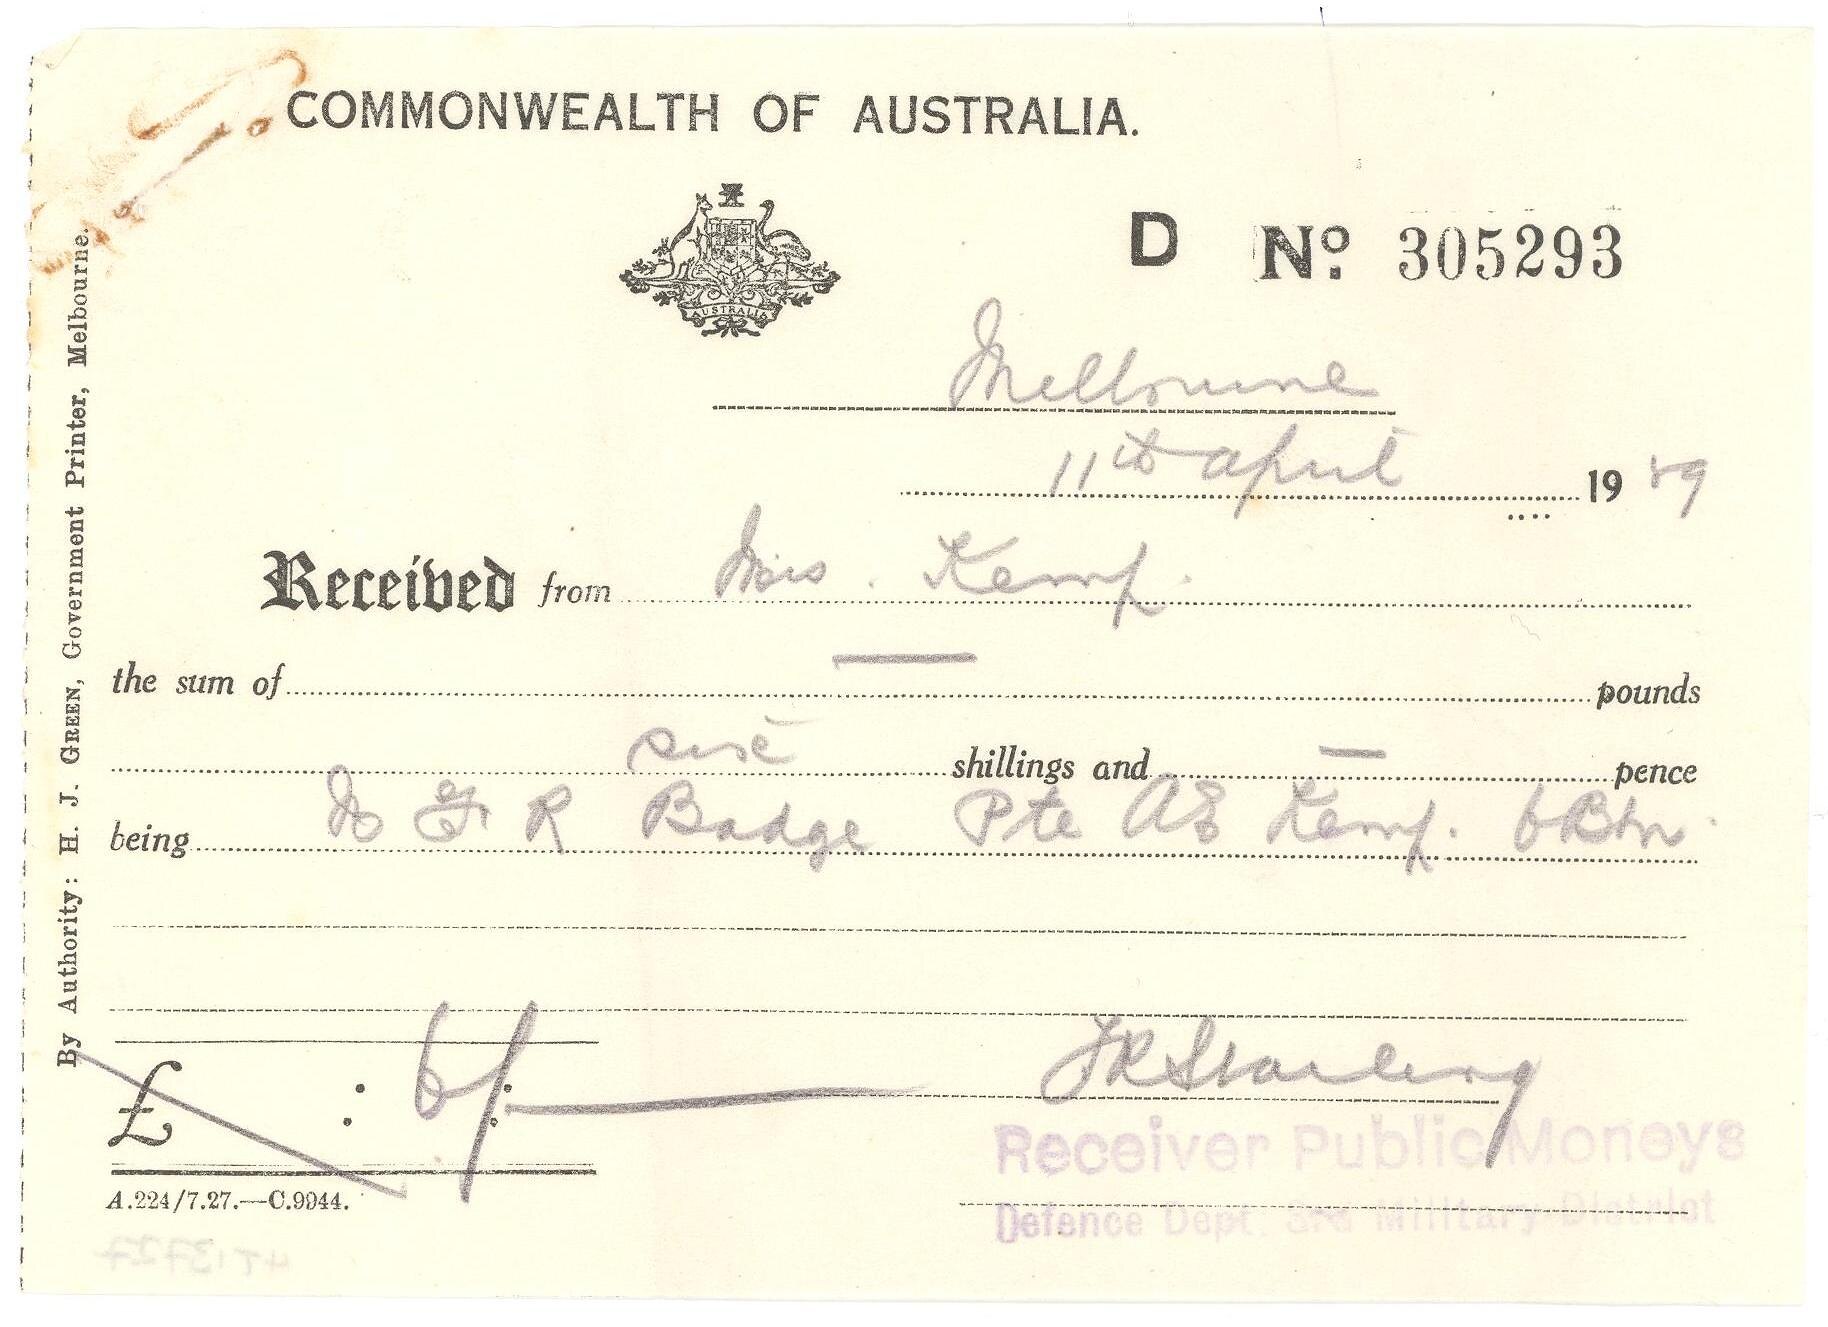 COMMONWEALTH OF AUSTRALIA.
AUSTRALIA
D No. 305293
Melbourne
11th April 19 29
Received from Mrs. Kemp.
the sum of — pounds
six shillings and — pence
being N F R Badge Pte A E Kemp. 6 Btn.
£ : 6/: —
Receiver Public Moneys
Defence Dept. 3rd Military District
A.224/7.27.—C.9944.
By Authority: H. J. GREEN, Government Printer, Melbourne.